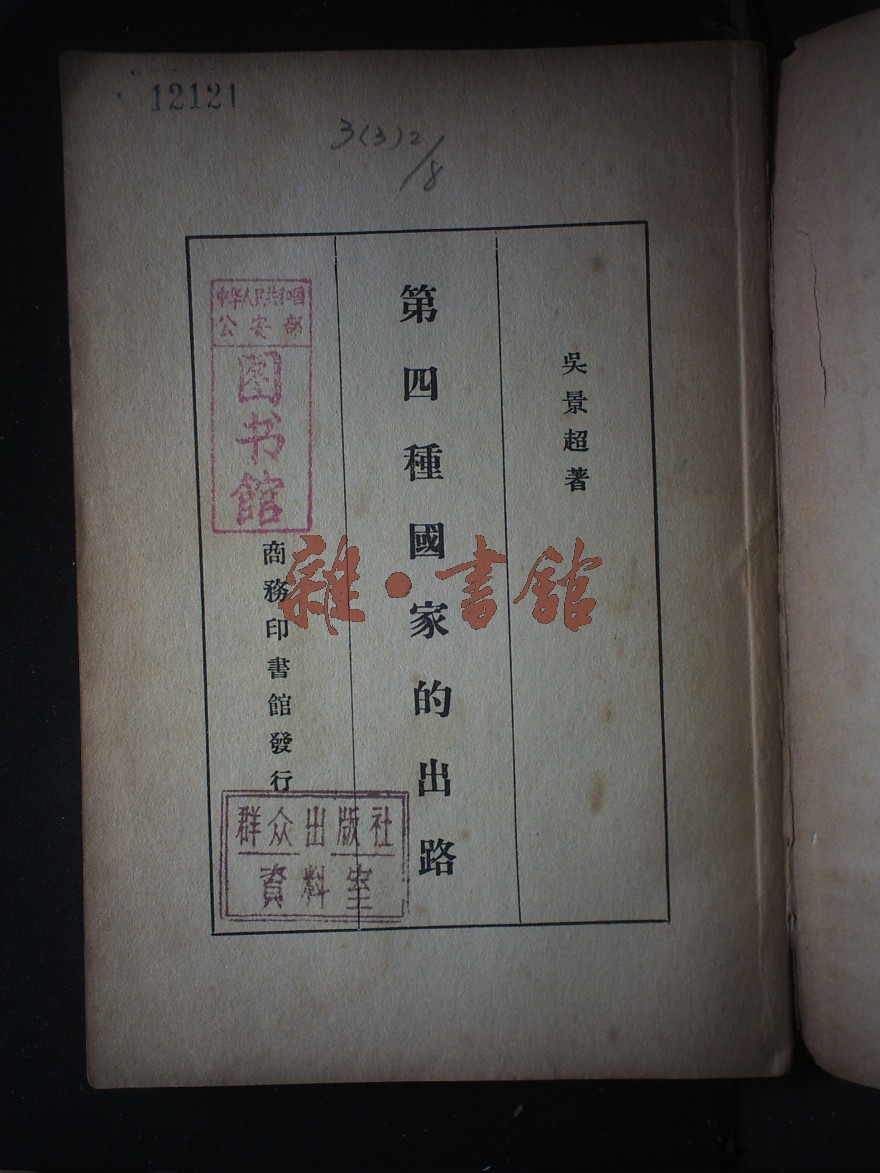 12121
3(3)2/8
吳景超著
第四種國家的出路
商務印書館發行
中华人民共和国
公安部
图书館
群众出版社
資料室
雜·書館